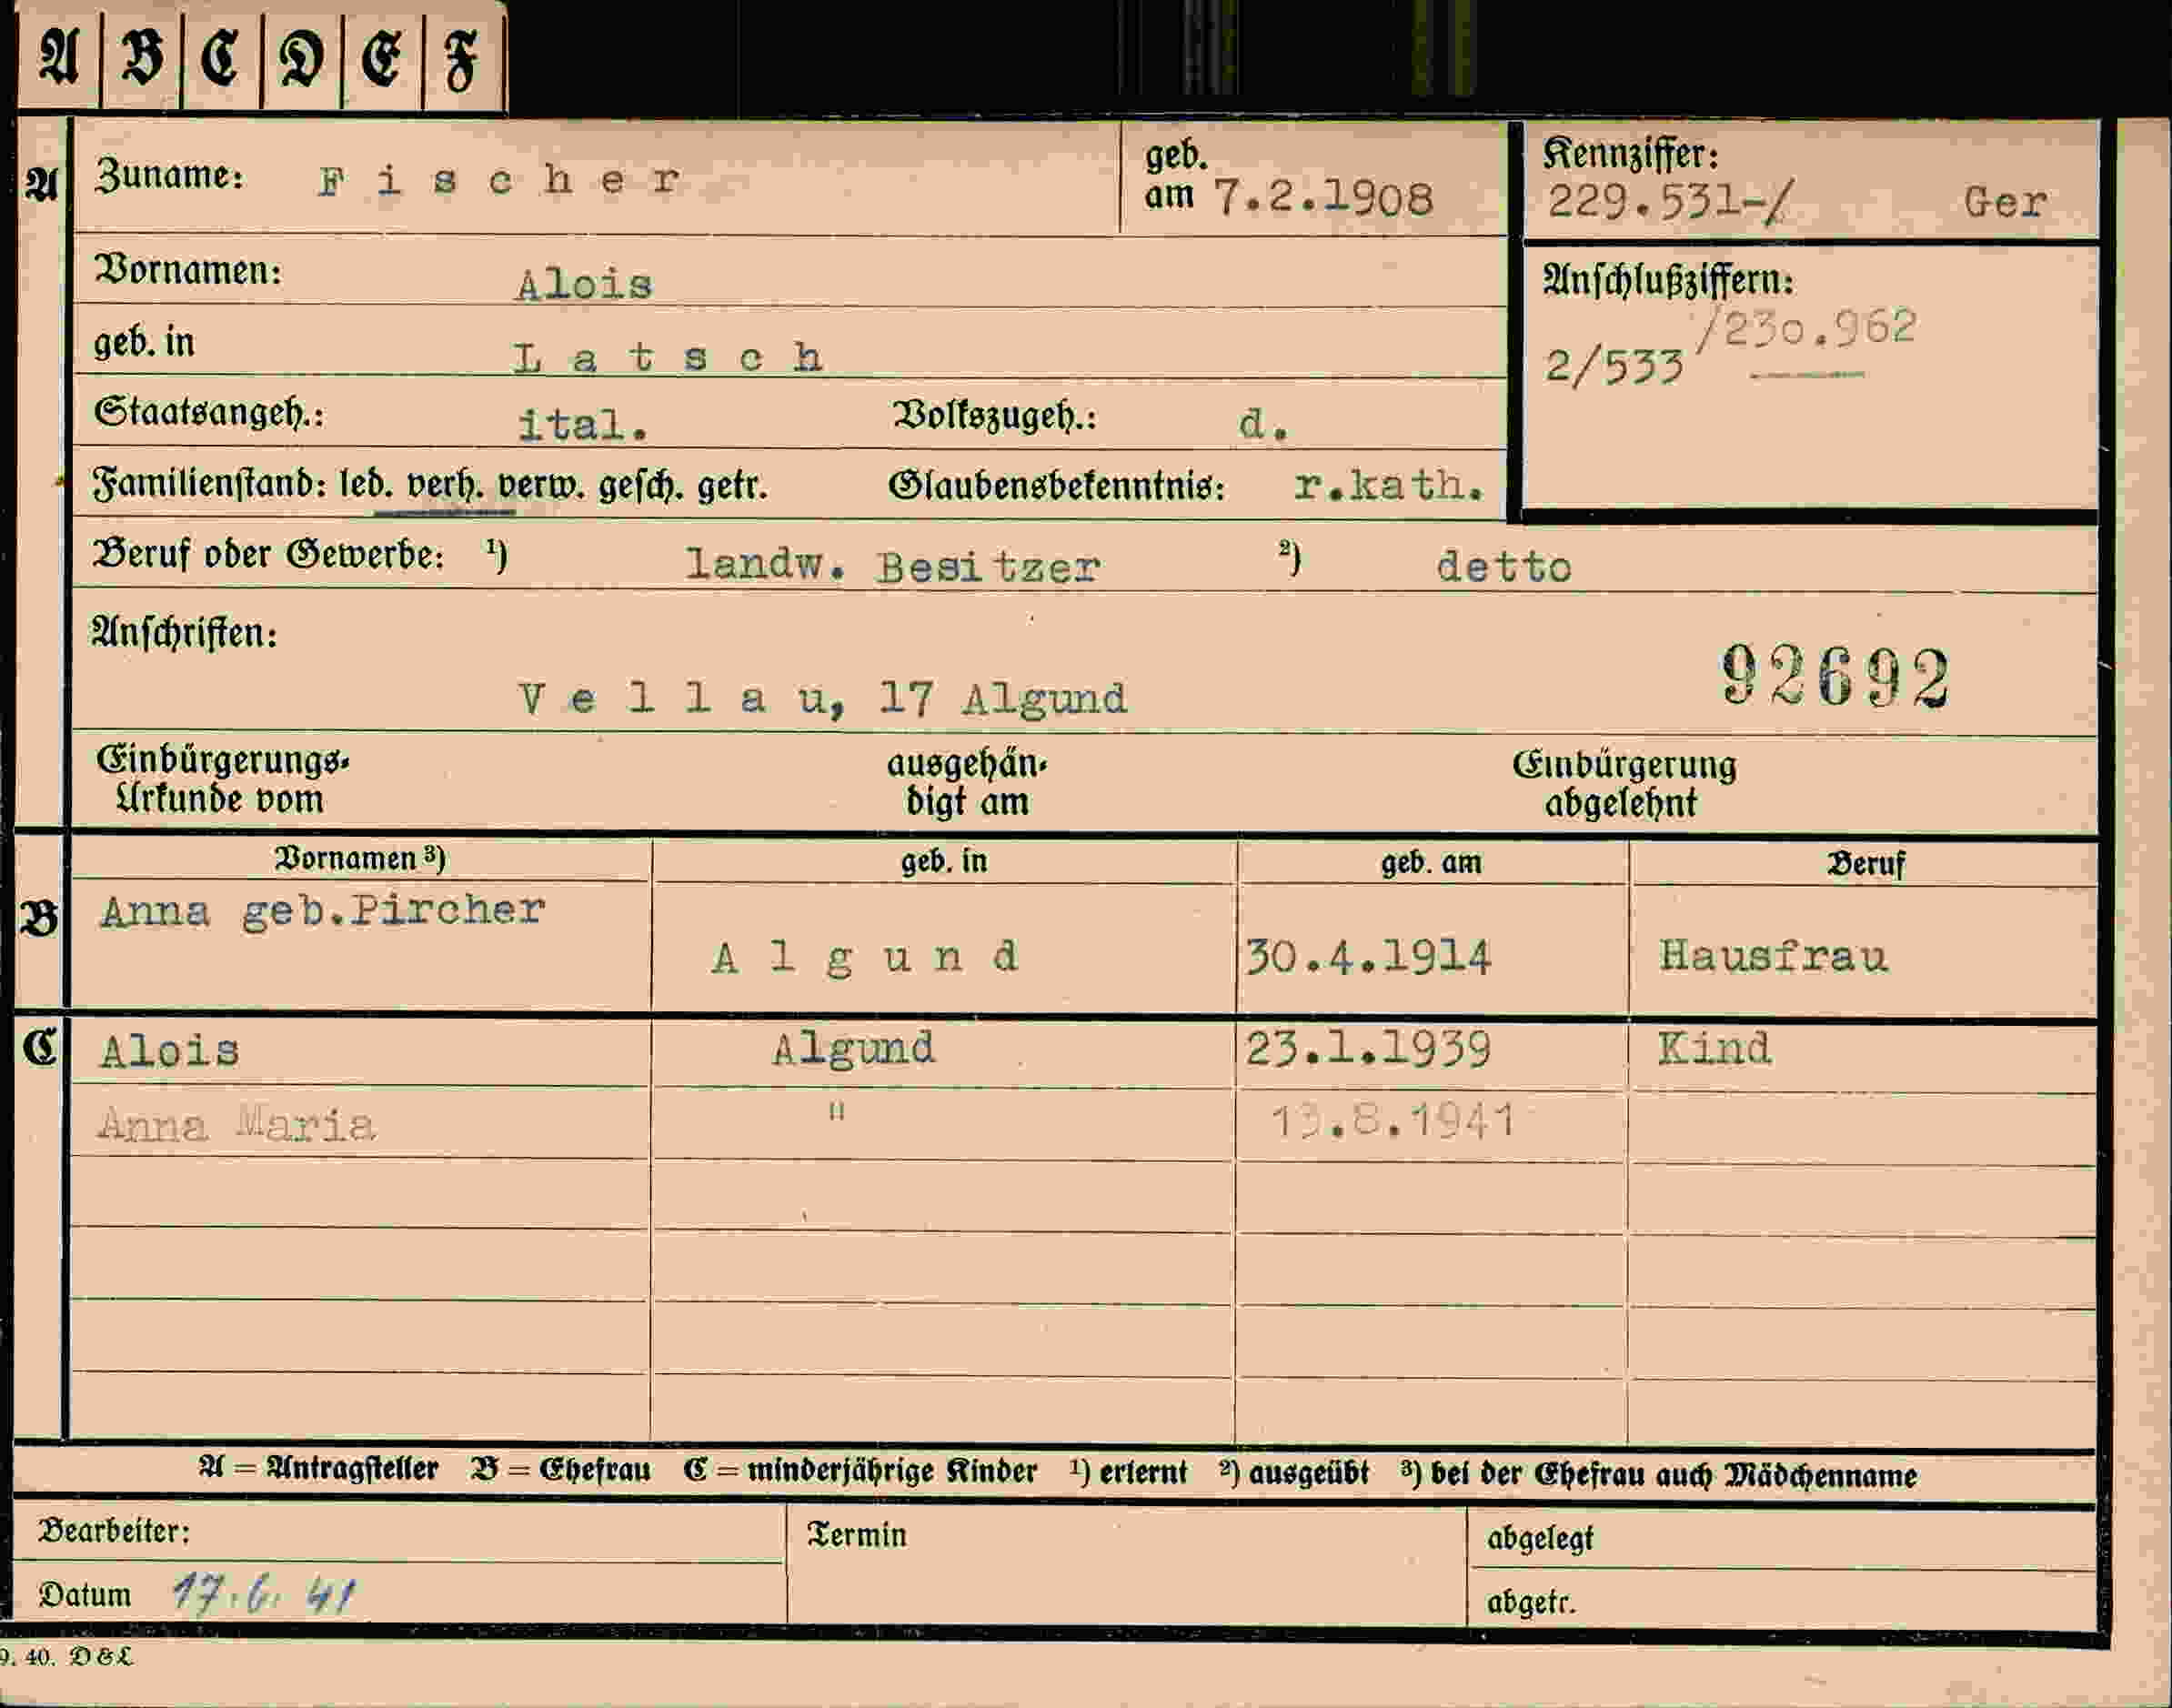 A B C D E F
A Zuname: Fischer geb. am 7.2.1908 Kennziffer: 229.531-/ Ger
Vornamen: Alois Anschlußziffern:
/230.962
geb. in Latsch 2/533
Staatsangeh.: ital. Volkszugeh.: d.
Familienstand: led. verh. verw. gesch. getr. Glaubensbekenntnis: r.kath.
Beruf oder Gewerbe: ¹) landw. Besitzer ²) detto
Anschriften:
Vellau, 17 Algund 92692
Einbürgerungs- ausgehän- Einbürgerung
Urkunde vom digt am abgelehnt
Vornamen ³) geb. in geb. am Beruf
B Anna geb.Pircher
Algund 30.4.1914 Hausfrau
C Alois Algund 23.1.1939 Kind
Anna Maria " 13.8.1941
A = Antragsteller B = Ehefrau C = minderjährige Kinder ¹) erlernt ²) ausgeübt ³) bei der Ehefrau auch Mädchenname
Bearbeiter: Termin abgelegt
Datum 17.6.41 abgetr.
9. 40. D & L